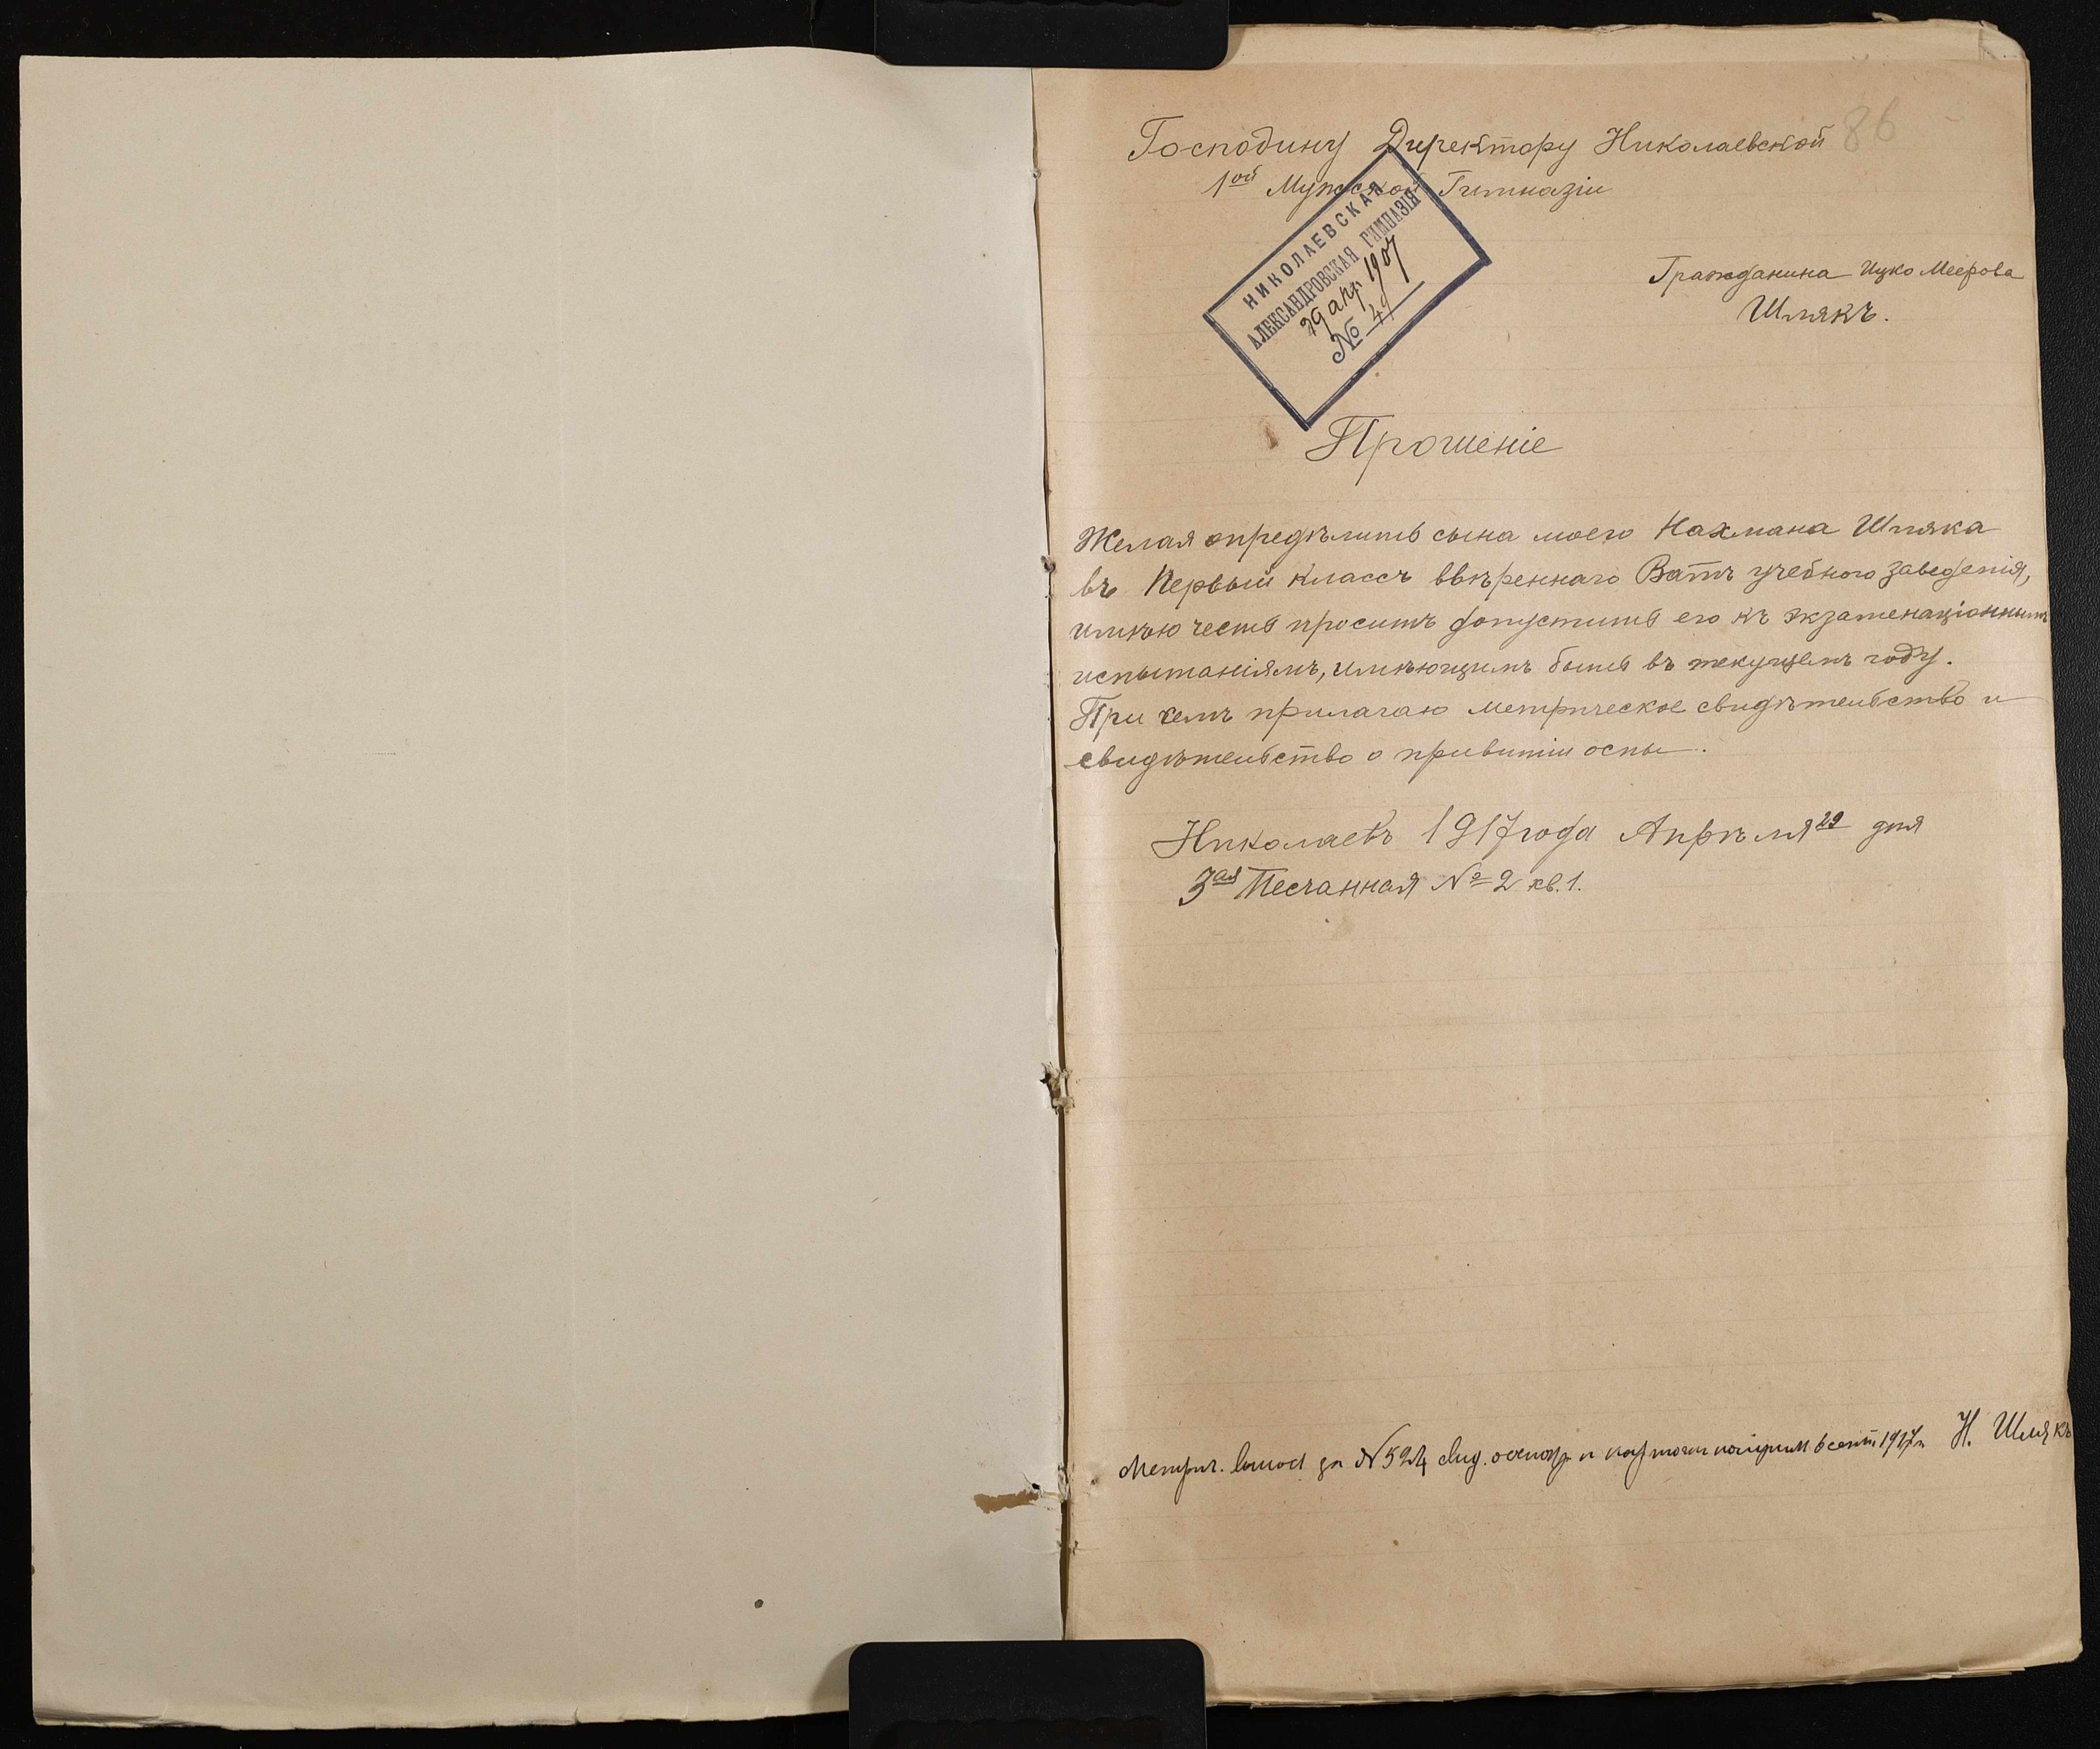 86
Господину Директору Николаевской
1ой Мужской Гимназіи
НИКОЛАЕВСКАЯ
АЛЕКСАНДРОВСКАЯ ГИМНАЗІЯ
29 апр. 1907
№
Гражданина Ицко Меерова
Шлякъ.
Прошеніе
Желая опредѣлить сына моего Нахмана Шляка
въ Первый классъ ввѣреннаго Вамъ учебного заведенія,
имѣю честь просить допустить его къ экзаменаціоннымъ
испытаніямъ, имѣющимъ быть въ текущемъ году.
При семъ прилагаю метрическое свидѣтельство и
свидѣтельство о привитіи оспы.
Николаевъ 1917 года Апрѣля 29 дня
3ая Песчанная № 2 кв. 1.
Метрич. за № 524 свид. и карточки получилъ 6 сент. 1917 г. Н. Шлякъ